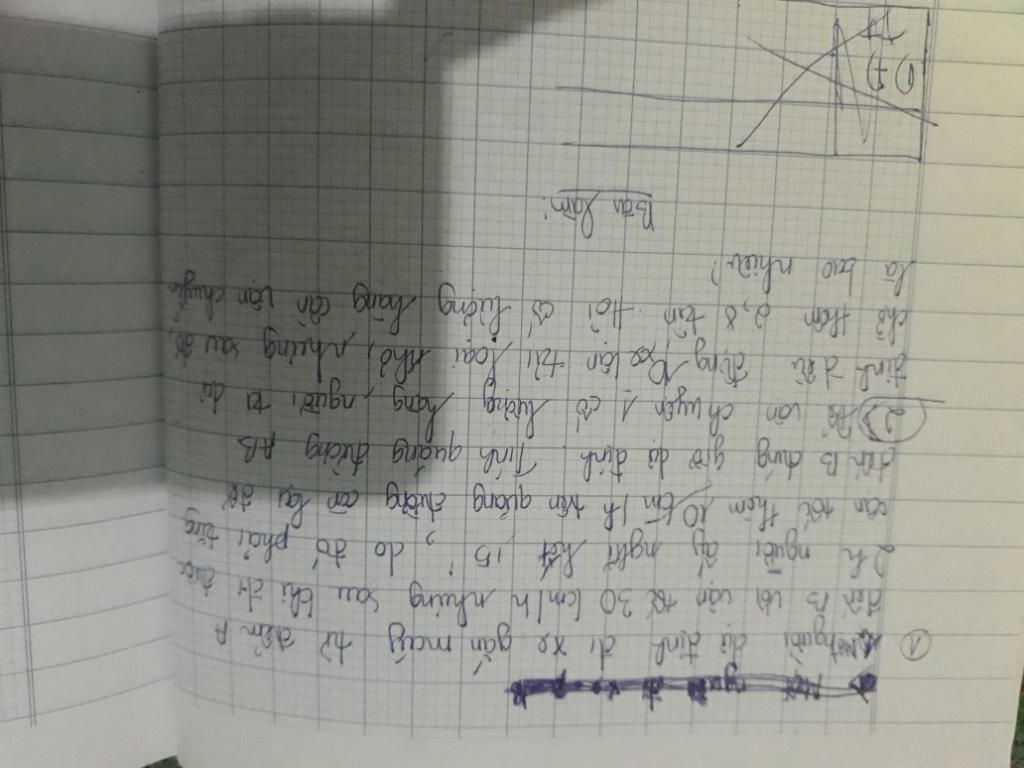 ① Một người dự định đi xe gắn máy từ điểm A
đến B với vận tốc 30 km/h nhưng sau khi đi được
2h người ấy nghỉ hết 15', do đó phải tăng
vận tốc thêm 10 km/h trên quãng đường còn lại để
đến B đúng giờ dự định. Tính quãng đường AB
② Để vận chuyển 1 số lượng hàng, người ta dự
định điều động xe tải loại nhỏ, nhưng sau đó,
chở thêm 2,8 tấn. Hỏi số lượng hàng cần vận chuyển
là bao nhiêu?
Bài làm:
1)